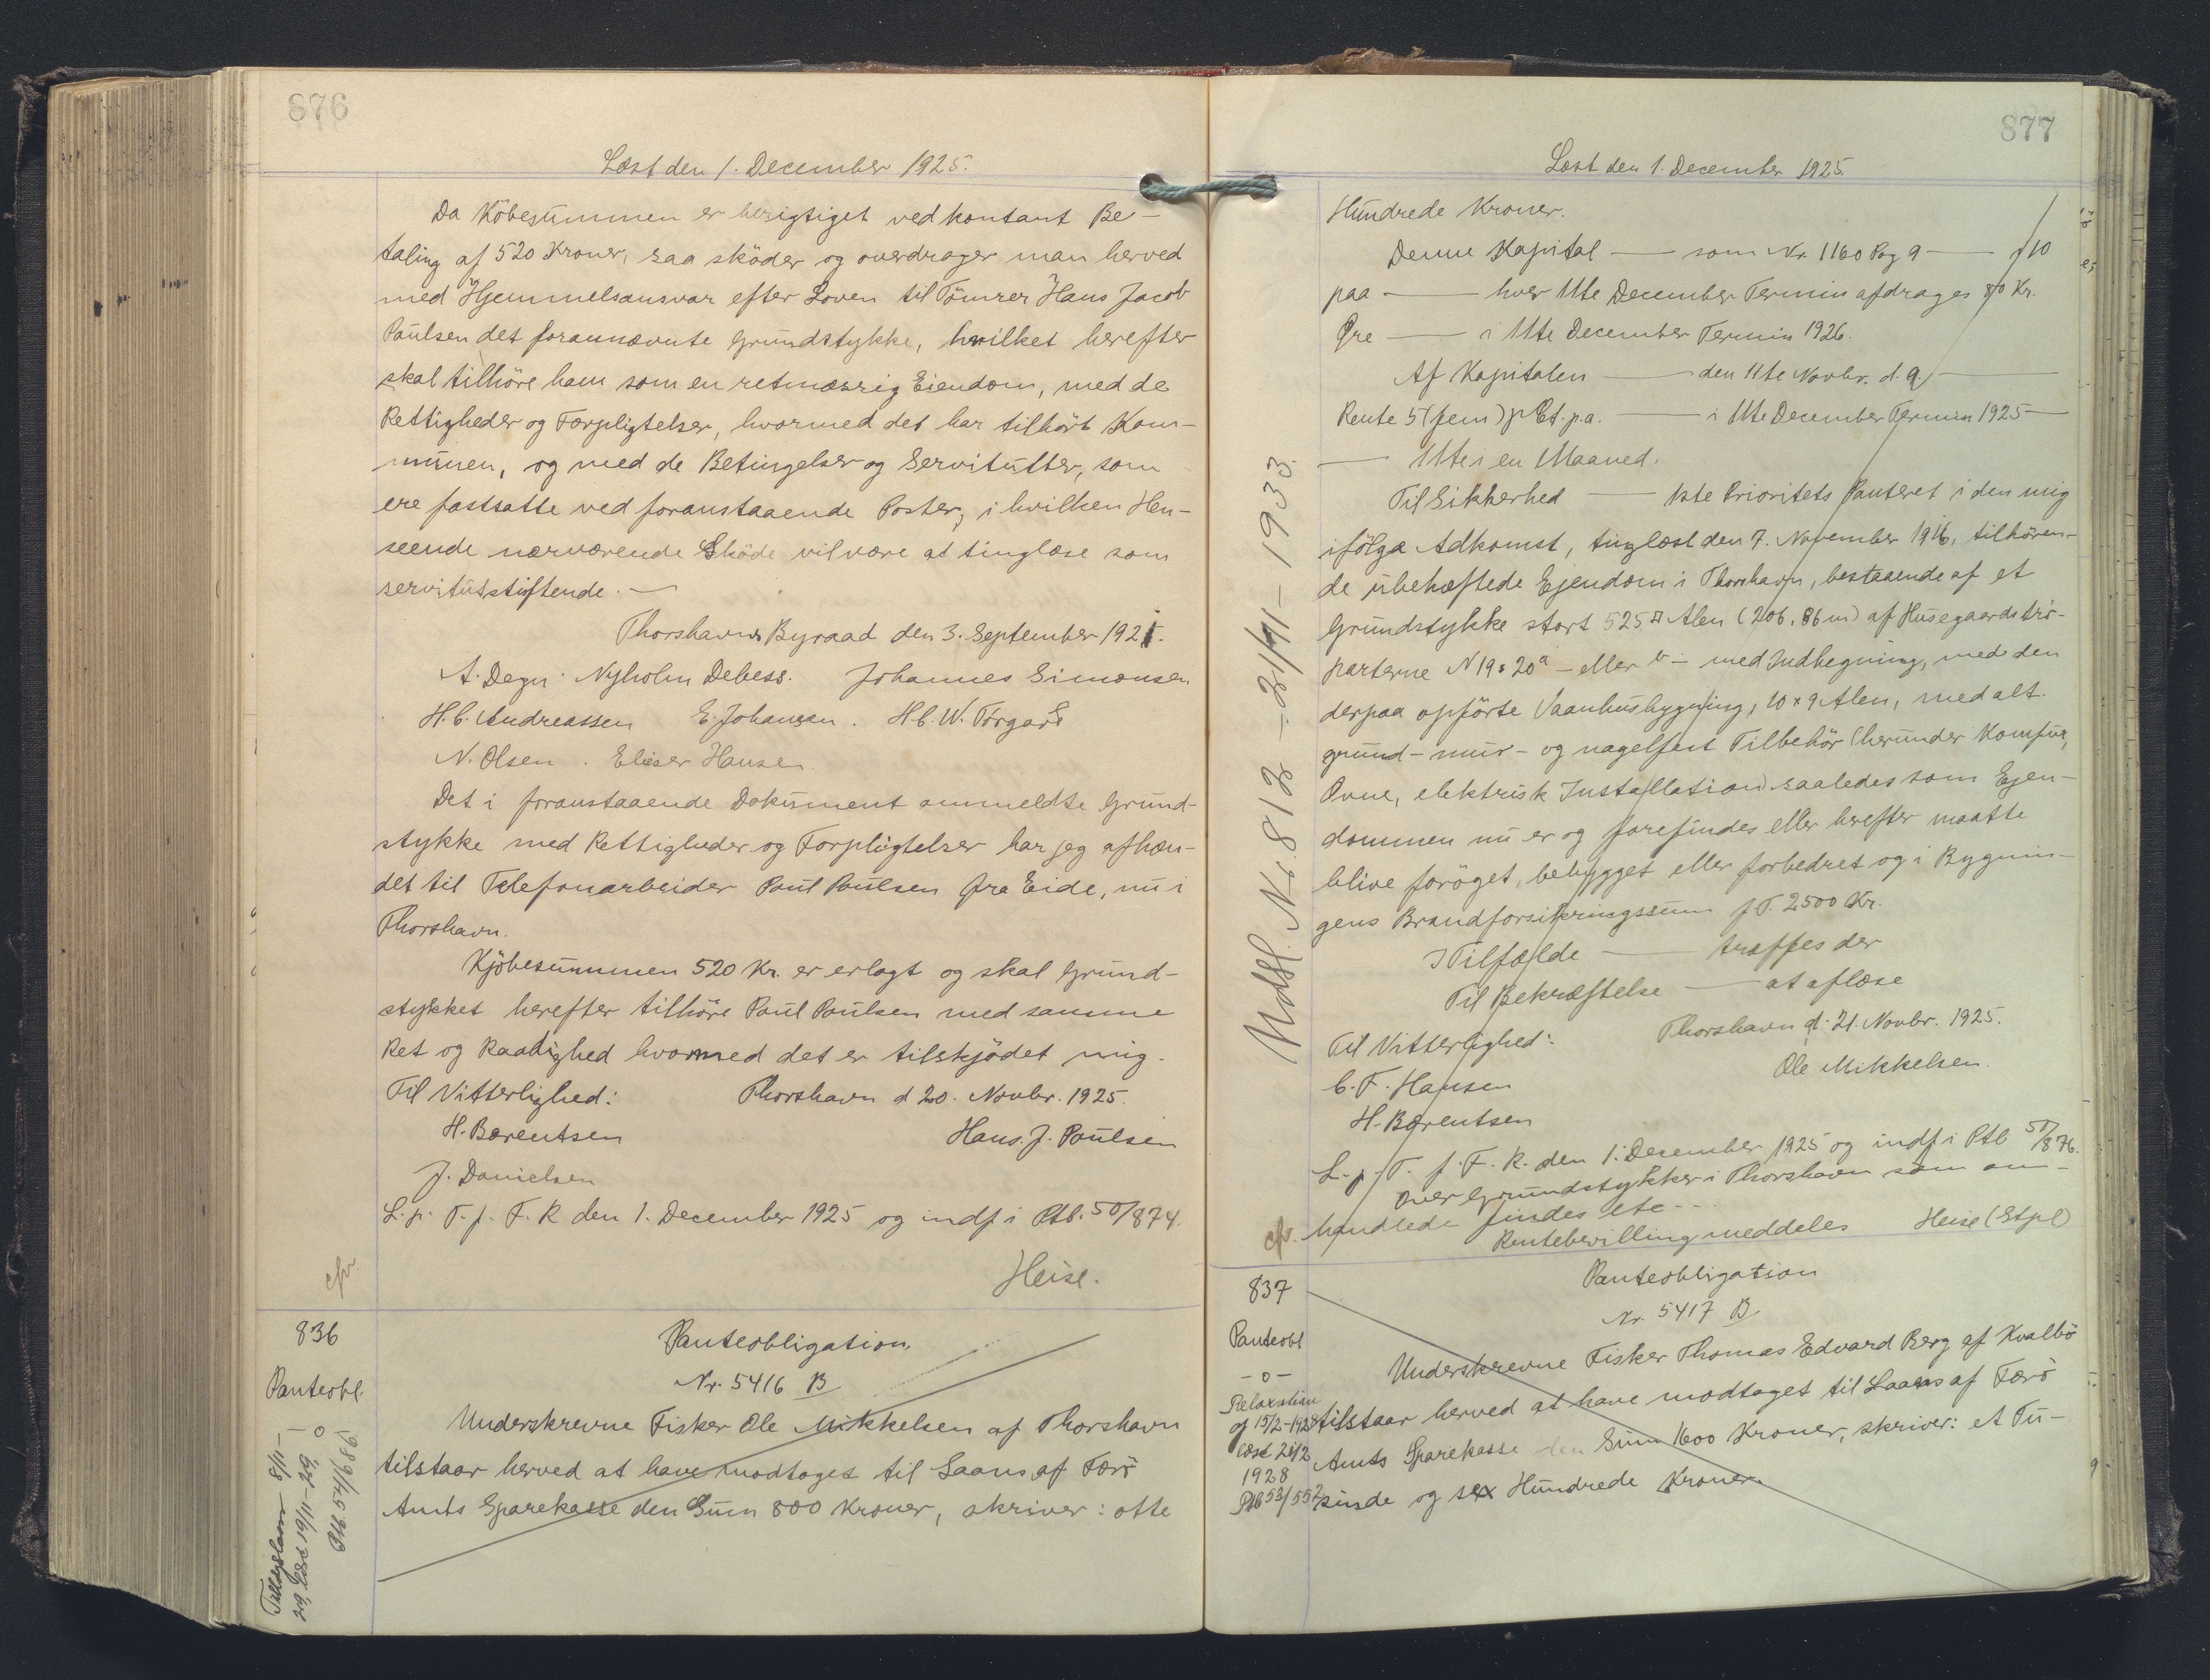 876
Læst den 1. December 1925.
Da Köbesummen er berigtiget ved kontant Be-
taling af 520 Kroner, saa sköder og overdrager man herved
med Hjemmelsansvar efter Loven til Tömrer Hans Jacob
Poulsen det forannævnte Grundstykke, hvilket herefter
skal tilhöre ham som en retmæssig Eiendom, med de
Rettigheder og Forpligtelser, hvormed det har tilhört Kom-
munen, og med de Betingelser og Servitutter, som
ere fastsatte ved foranstaaende Poster, i hvilken Hen-
seende nærværende Sköde vil være at tinglæse som
servitutstiftende. —
Thorshavns Byraad den 3. September 1921.
A. Degn. Nyholm Debess. Johannes Simonsen
H. C. Andreassen E. Johansen. H. C. W. Tórgarð
N. Olsen. Elieser Hansen
Det i foranstaaende Dokument ommeldte Grund-
stykke med Rettigheder og Forpligtelser har jeg afhæn-
det til Telefonarbeider Poul Poulsen fra Eide, nu i
Thorshavn.
Kjöbesummen 520 Kr. er erlagt og skal Grund-
stykket herefter tilhöre Poul Poulsen med samme
Ret og Raadighed hvormed det er tilskjödet mig.
Til Vitterlighed: Thorshavn d 20. Novbr. 1925.
H. Bærentsen Hans. J. Poulsen
J. Danielsen
L. p. T. f. F. R den 1. December 1925 og indf i Ptb. 50/874.
cfr. Heise.
836
Panteobl.
Tillægslaan 8/11-
29, læst 19/11-29,
Ptb. 54/686.
Panteobligation.
Nr. 5416 B
Underskrevne Fisker Ole Mikkelsen af Thorshavn
tilstaar herved at have modtaget til Laans af Færö
Amts Sparekasse den Sum 800 Kroner, skriver: otte
877
Læst den 1. December 1925
Hundrede Kroner.
Denne Kapital — som Nr. 1160 Pag 9 — 10
paa — hver 11te December Termin afdrages 80 Kr.
Öre — i 11te December Termin 1926.
Af Kapitalen — den 11te Novbr. d. a. —
Rente 5 (fem) pCt. p.a. — i 11te December Termin 1925 —
— 11te i en Maaned.
Til Sikkerhed — 1ste Prioritets Panteret i den mig
ifölge Adkomst, tinglæst den 7. November 1916, tilhören-
de ubehæftede Ejendom i Thorshavn, bestaaende af et
Grundstykke stort 525 □ Alen (206,86 m) af Husegaardströ-
parterne N 19 & 20a – eller b – med Indhegning, med den
derpaa opförte Vaanhusbygning, 10 x 9 Alen, med alt
grund- mur- og nagelfast Tilbehör (herunder Komfur,
Ovne, elektrisk Installation) saaledes som Ejen-
dommen nu er og forefindes eller herefter maatte
blive foröget, bebygget eller forbedret og i Bygnin-
gens Brandforsikringssum f. T. 2500 Kr.
I Tilfælde — træffes der
Til Bekræftelse — at aflæse
Til Vitterlighed: Thorshavn d. 21. Novbr. 1925.
C. F. Hansen Ole Mikkelsen.
H. Bærentsen
L. p. T. f. F. R. den 1. December 1925 og indf i Ptb 50/876.
Over Grundstykker i Thorshavn som om-
cfr. handlede findes ete - - .
Rentebevilling meddeles Heise (Stpl)
Udsl. No. 812 - 21/11 - 1933.
837
Panteobl
- o -
Relaxation
af 15/2-1928
læst 21/2
1928
Ptb 53/552
Panteobligation
Nr. 5417 B
Underskrevne Fisker Thomas Edvard Berg af Kvalbö
tilstaar herved at have modtaget til Laans af Færö
Amts Sparekasse den Sum 1600 Kroner, skriver: et Tu-
sinde og sex Hundrede Kroner.